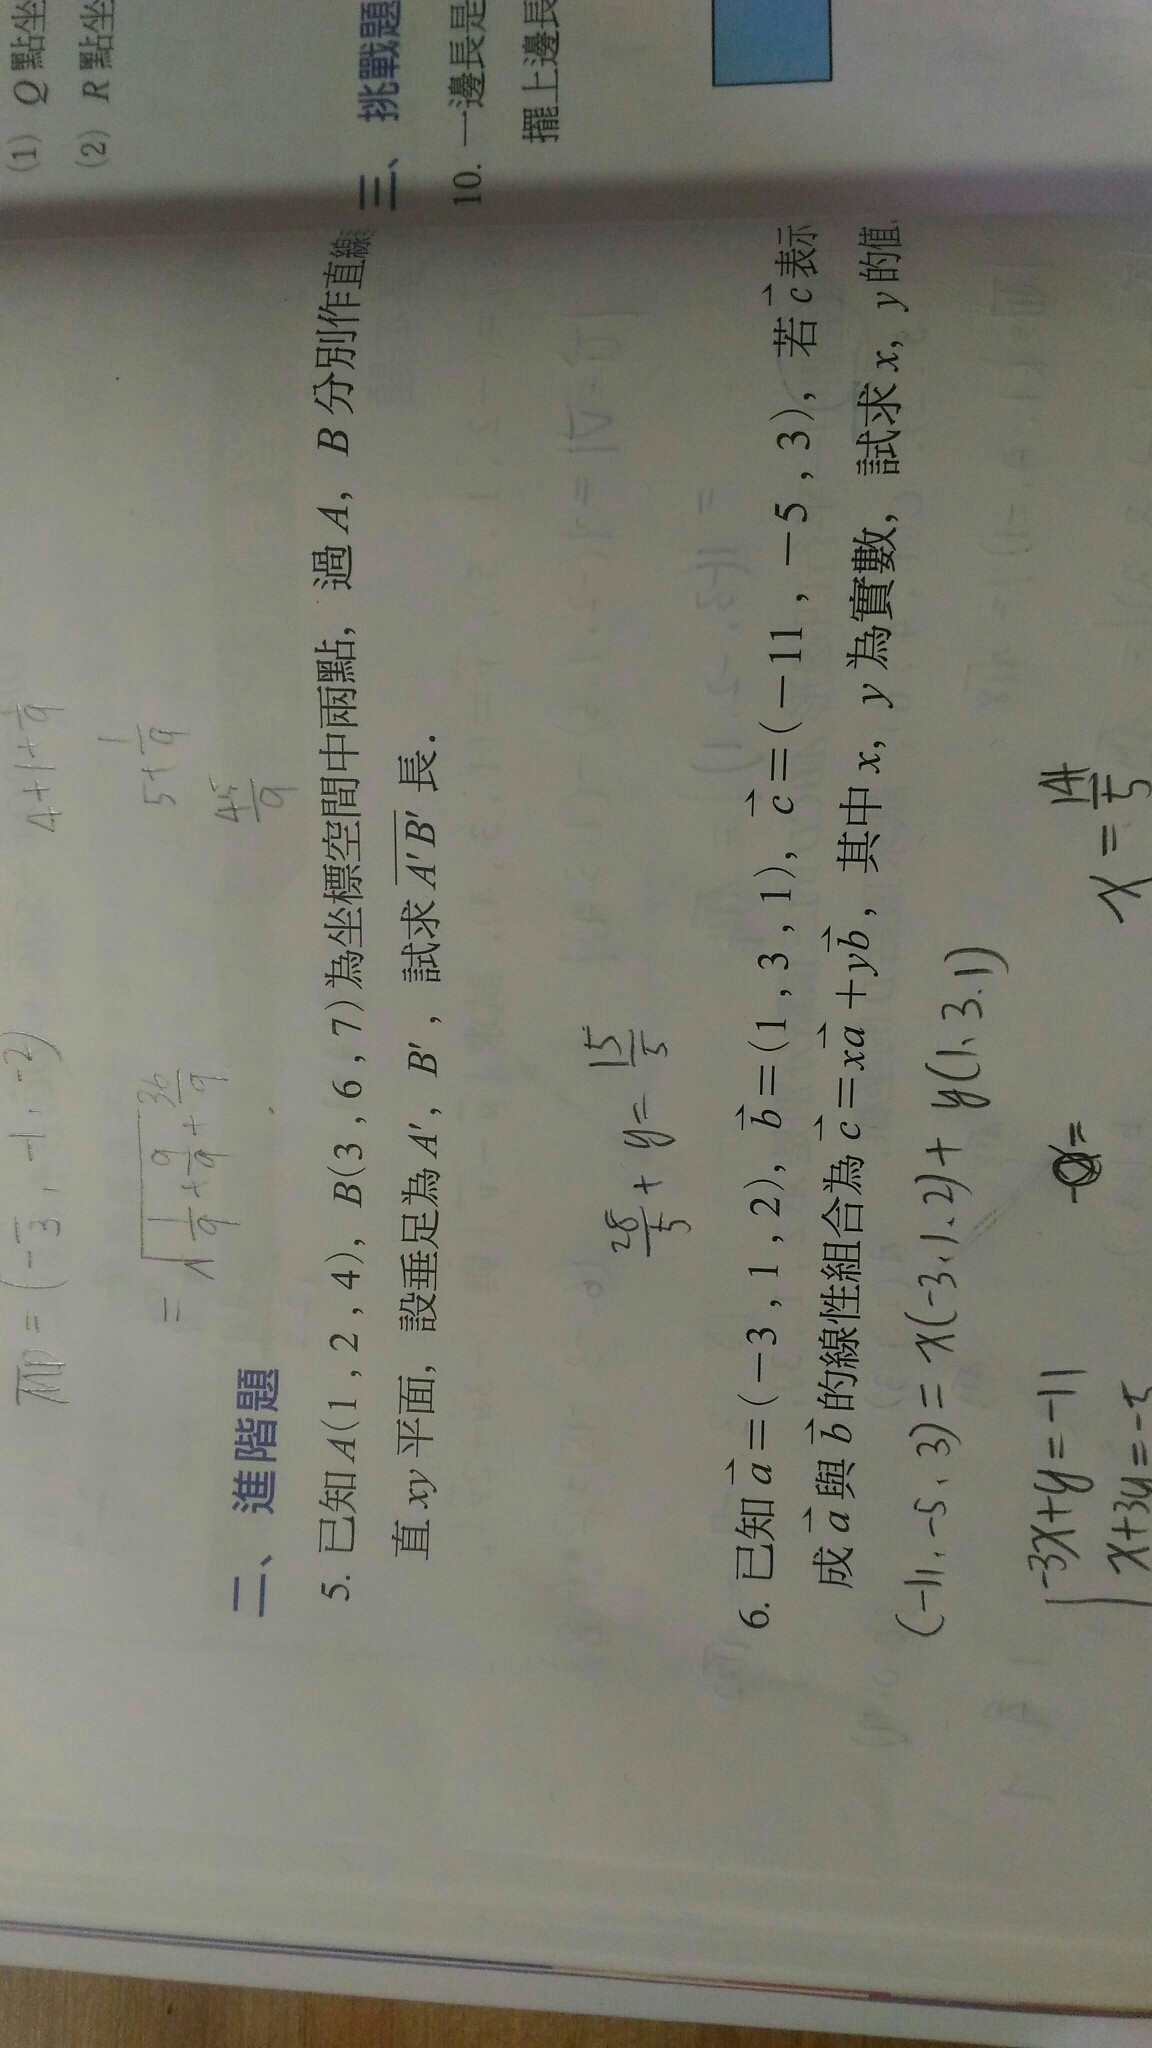 (1) Q 點坐
(2) R 點坐
三、挑戰題
10. 一邊長是
擺上邊長
4+1+1/9
5+1/9
45/9
= √(1/9+9/9+36/9)
二、進階題
5. 已知A(1,2,4), B(3,6,7)為坐標空間中兩點, 過A, B分別作直線
直xy平面, 設垂足為A′, B′, 試求A′B′長.
28/5 + y = 15/5
6. 已知a=(−3,1,2), b=(1,3,1), c=(−11,−5,3), 若c表示
成a與b的線性組合為c=xa+yb, 其中x, y為實數, 試求x, y的值
(-11,-5,3)=x(-3,1,2)+y(1,3,1)
-3x+y=-11
x+3y=-5
x=14/5